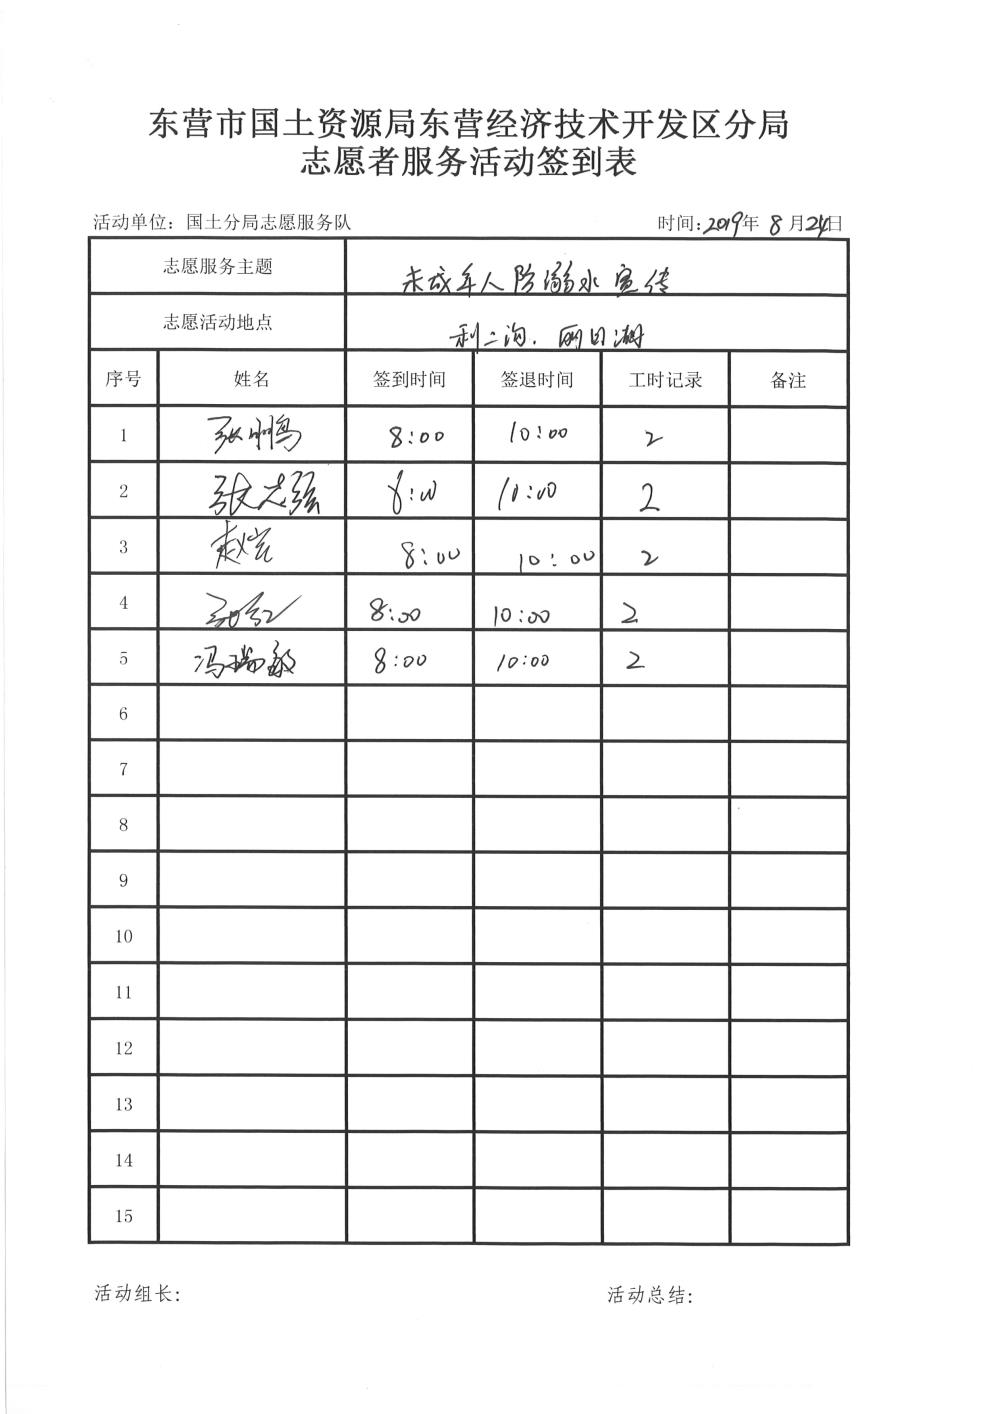 东营市国土资源局东营经济技术开发区分局
志愿者服务活动签到表
活动单位：国土分局志愿服务队 时间:2019年 8 月24日
志愿服务主题 未成年人防溺水宣传
志愿活动地点 利二沟．丽日湖
序号 姓名 签到时间 签退时间 工时记录 备注
1 张明鹏 8:00 10:00 2
2 张志强 8:00 10:00 2
3 赵岩 8:00 10:00 2
4 8:00 10:00 2
5 冯瑞敏 8:00 10:00 2
6
7
8
9
10
11
12
13
14
15
活动组长: 活动总结: